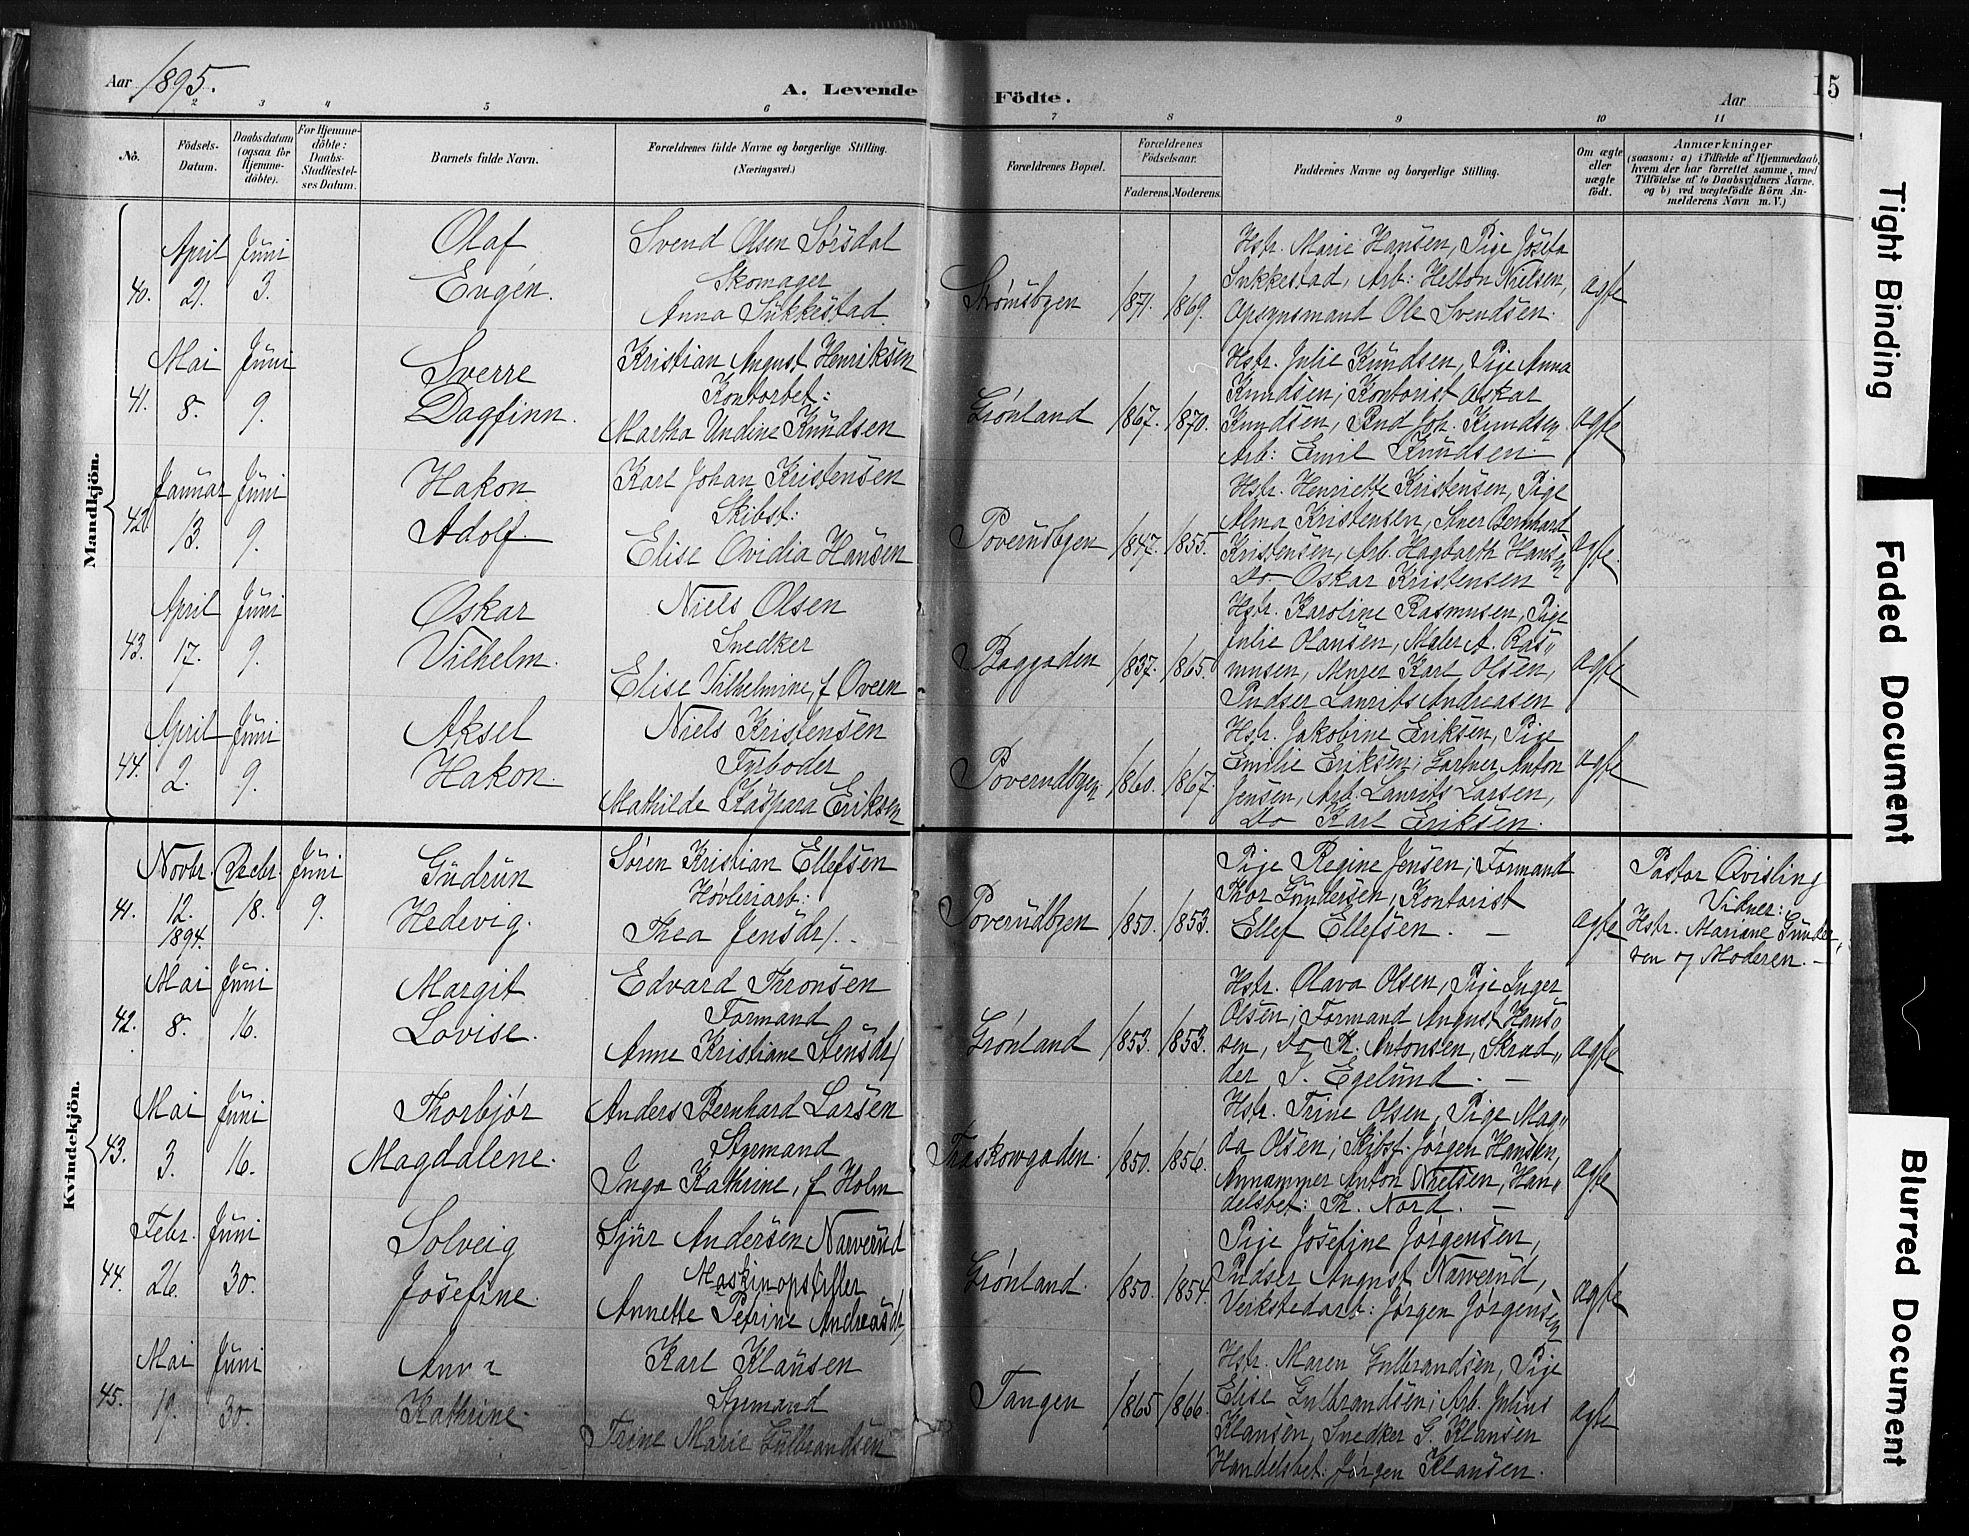 Aar 1895.
A. Levende Födte.
Aar
15
2 3 4 5 6 7 8 9 10 11
No.
Födsels-Datum.
Daabsdatum (ogsaa for Hjemme-döbte).
For Hjemme-döbte: Daabs-Stadfæstel-ses Datum.
Barnets fulde Navn.
Forældrenes fulde Navne og borgerlige Stilling. (Næringsvei.)
Forældrenes Bopæl.
Forældrenes Födselsaar.
Faderens. Moderens.
Faddernes Navne og borgerlige Stilling.
Om ægte eller uægte födt.
Anmærkninger
(saasom: a) i Tilfælde af Hjemmedaab, hvem der har forrettet samme, med Tilföielse af to Daabsvidners Navne, og b) ved uægtefödte Börn An-melderens Navn m. V.)
Mandkjön.
40. April 21. Juni 3.
Olaf
Eugén.
Svend Olsen Sørsdal
Skomager
Anna Sukkestad
Strømsbyen 1871. 1869.
Hstr. Marie Hansen, Pige Josefa
Sukkestad, Arb: Helton Nielsen,
Opsynsmand Ole Svendsen.
ægte
41. Mai 8. Juni 9.
Sverre
Dagfinn.
Kristian August Henriksen
Kontorbet:
Martha Undine Knudsen
Grønland 1867. 1870.
Hstr. Julie Knudsen, Pige Anna
Knudsen; Kontorist Oskar
Knudsen, Bud Joh. Knudsen
Arb: Emil Knudsen.
ægte
42. Januar 13. Juni 9.
Hakon
Adolf.
Karl Johan Kristensen
Skibst:
Elise Ovidia Hansen
Poverudbyen 1847. 1855.
Hstr. Henriette Kristensen, Pige
Alma Kristensen, Bernhart
Kristensen, Arb. Hagbarth Hansen
Do Oskar Kristensen
ægte.
43. April 17. Juni 9.
Oskar
Vilhelm.
Niels Olsen
Snedker
Elise Vilhelmine, f Oveen
Baggaden 1837. 1865.
Hstr. Karoline Rasmusen, Pige
Julie Olausen, Maler A. Ras„
musen, Murer Karl Olsen,
Pudser Laurits Andreasen
ægte
44. April 2. Juni 9.
Aksel
Hakon.
Niels Kristensen
Fyrbøder
Mathilde Kaspara Eriksen
Poverudbyen 1860. 1867.
Hstr. Jakobine Eriksen, Pige
Emilie Eriksen; Gartner Anton
Jensen, Arb. Laurits Larsen,
Do Karl Eriksen.
ægte
Kvindekjön.
41. Novbr. 12. 1894. Decbr. 18. Juni 9.
Gudrun
Hedevig.
Søren Kristian Ellefsen
Høvleriarb:
Thea Jensdr.
Poverudbyen 1850. 1853.
Pige Regine Jensen; Formand
Thor Gundersen, Kontorist
Ellef Ellefsen. —
ægte
Pastor Qvisling
Vidner:
Hstr. Mariane Gunder„
sen og Moderen. —
42. Mai 8. Juni 16.
Margit
Lovise.
Edvard Thronsen
Formand
Anne Kristiane Stensdr
Grønland 1853. 1853.
Hstr. Olava Olsen, Pige Inger
Olsen; Formand August Hans„
sen, Do K. Antonsen, Skræd„
der J. Egelund. —
ægte
43. Mai 3. Juni 16.
Thorbjør
Magdalene.
Anders Bernhard Larsen
Styrmand
Inga Kathrine, f Holm
Træskowgaden. 1850. 1856.
Hstr. Trine Olsen, Pige Mag„
da Olsen; Skibsf. Jørgen Hansen,
Annammer Anton Nielsen, Han„
delsbet: Th. Nord. —
ægte
44. Febr. 26. Juni 30.
Solveig
Josefine.
Sjur Andersen Narverud
Maskinopsitter
Annette Petrine Andreasdr
Grønland. 1850. 1854.
Pige Josefine Jørgensen,
Pudser August Narverud,
Verkstedarb: Jørgen Jørgensen
ægte
45. Mai 19. Juni 30.
Anna
Kathrine.
Karl Klausen
Styrmand
Trine Marie Gulbrandsen
Tangen 1865 1866.
Hstr. Maren Gulbrandsen, Pige
Elise Gulbrandsen; Arb. Julius
Klausen, Snedker G. Klausen
Handelsbet: Jørgen Klausen.
ægte
Tight Binding
Faded Document
Blurred Document